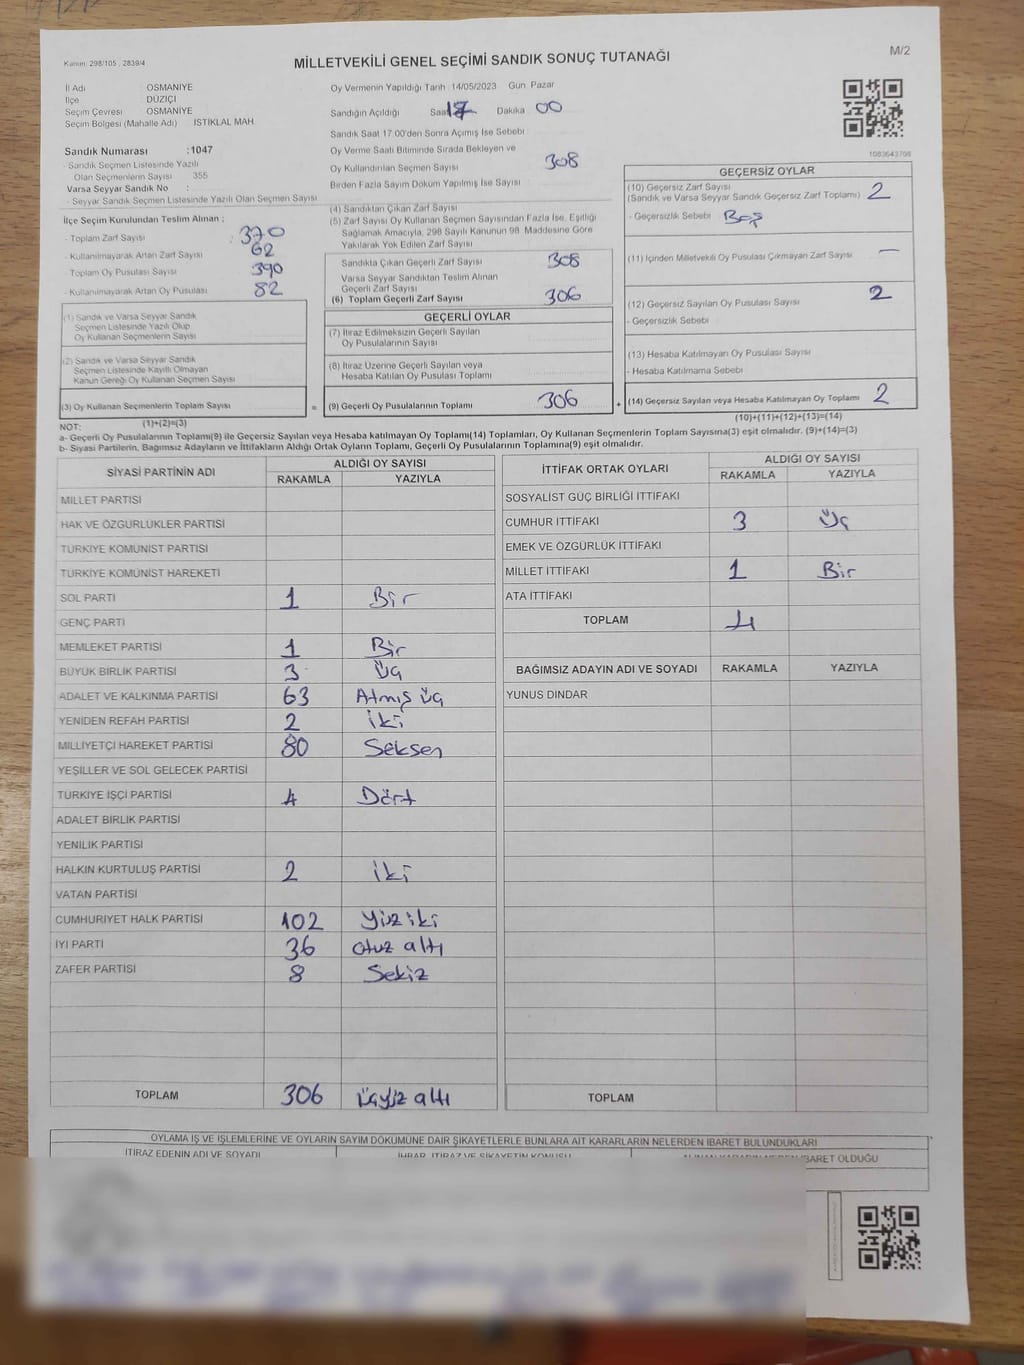 M/2
Kanun: 298/105 , 2839/4
MİLLETVEKİLİ GENEL SEÇİMİ SANDIK SONUÇ TUTANAĞI
İl Adı OSMANİYE
İlçe DÜZİÇİ
Seçim Çevresi OSMANİYE
Seçim Bölgesi (Mahalle Adı) İSTİKLAL MAH.
Sandık Numarası : 1047
- Sandık Seçmen Listesinde Yazılı
Olan Seçmenlerin Sayısı 355
Varsa Seyyar Sandık No :
- Seyyar Sandık Seçmen Listesinde Yazılı Olan Seçmen Sayısı
İlçe Seçim Kurulundan Teslim Alınan :
- Toplam Zarf Sayısı : 370
- Kullanılmayarak Artan Zarf Sayısı 62
- Toplam Oy Pusulası Sayısı 390
- Kullanılmayarak Artan Oy Pusulası 82
(1) Sandık ve Varsa Seyyar Sandık
Seçmen Listesinde Yazılı Olup
Oy Kullanan Seçmenlerin Sayısı
(2) Sandık ve Varsa Seyyar Sandık
Seçmen Listesinde Kayıtlı Olmayan
Kanun Gereği Oy Kullanan Seçmen Sayısı
(3) Oy Kullanan Seçmenlerin Toplam Sayısı
(1)+(2)=(3)
Oy Vermenin Yapıldığı Tarih 14/05/2023 Gün Pazar
Sandığın Açıldığı Saat 17 Dakika 00
Sandık Saat 17.00'den Sonra Açılmış İse Sebebi
Oy Verme Saati Bitiminde Sırada Bekleyen ve
Oy Kullandırılan Seçmen Sayısı 308
Birden Fazla Sayım Döküm Yapılmış İse Sayısı
(4) Sandıktan Çıkan Zarf Sayısı
(5) Zarf Sayısı Oy Kullanan Seçmen Sayısından Fazla İse, Eşitliği
Sağlamak Amacıyla, 298 Sayılı Kanunun 98. Maddesine Göre
Yakılarak Yok Edilen Zarf Sayısı
Sandıkta Çıkan Geçerli Zarf Sayısı 308
Varsa Seyyar Sandıktan Teslim Alınan
Geçerli Zarf Sayısı
(6) Toplam Geçerli Zarf Sayısı 306
GEÇERLİ OYLAR
(7) İtiraz Edilmeksizin Geçerli Sayılan
Oy Pusulalarının Sayısı
(8) İtiraz Üzerine Geçerli Sayılan veya
Hesaba Katılan Oy Pusulası Toplamı
= (9) Geçerli Oy Pusulalarının Toplamı 306 +
1083643708
GEÇERSİZ OYLAR
(10) Geçersiz Zarf Sayısı 2
(Sandık ve Varsa Seyyar Sandık Geçersiz Zarf Toplamı)
- Geçersizlik Sebebi Boş
(11) İçinden Milletvekili Oy Pusulası Çıkmayan Zarf Sayısı —
(12) Geçersiz Sayılan Oy Pusulası Sayısı 2
- Geçersizlik Sebebi
(13) Hesaba Katılmayan Oy Pusulası Sayısı
- Hesaba Katılmama Sebebi
(14) Geçersiz Sayılan veya Hesaba Katılmayan Oy Toplamı 2
(10)+(11)+(12)+(13)=(14)
NOT:
a- Geçerli Oy Pusulalarının Toplamı(9) ile Geçersiz Sayılan veya Hesaba katılmayan Oy Toplamı(14) Toplamları, Oy Kullanan Seçmenlerin Toplam Sayısına(3) eşit olmalıdır. (9)+(14)=(3)
b- Siyasi Partilerin, Bağımsız Adayların ve İttifakların Aldığı Ortak Oyların Toplamı, Geçerli Oy Pusulalarının Toplamına(9) eşit olmalıdır.
SİYASİ PARTİNİN ADI ALDIĞI OY SAYISI
RAKAMLA YAZIYLA
MİLLET PARTİSİ
HAK VE ÖZGÜRLÜKLER PARTİSİ
TÜRKİYE KOMÜNİST PARTİSİ
TÜRKİYE KOMÜNİST HAREKETİ
SOL PARTİ 1 Bir
GENÇ PARTİ
MEMLEKET PARTİSİ 1 Bir
BÜYÜK BİRLİK PARTİSİ 3 Üç
ADALET VE KALKINMA PARTİSİ 63 Atmış üç
YENİDEN REFAH PARTİSİ 2 iki
MİLLİYETÇİ HAREKET PARTİSİ 80 Seksen
YEŞİLLER VE SOL GELECEK PARTİSİ
TÜRKİYE İŞÇİ PARTİSİ 4 Dört
ADALET BİRLİK PARTİSİ
YENİLİK PARTİSİ
HALKIN KURTULUŞ PARTİSİ 2 iki
VATAN PARTİSİ
CUMHURİYET HALK PARTİSİ 102 Yüz iki
İYİ PARTİ 36 otuz altı
ZAFER PARTİSİ 8 Sekiz
TOPLAM 306 üçyüz altı
İTTİFAK ORTAK OYLARI ALDIĞI OY SAYISI
RAKAMLA YAZIYLA
SOSYALİST GÜÇ BİRLİĞİ İTTİFAKI
CUMHUR İTTİFAKI 3 Üç
EMEK VE ÖZGÜRLÜK İTTİFAKI
MİLLET İTTİFAKI 1 Bir
ATA İTTİFAKI
TOPLAM 4
BAĞIMSIZ ADAYIN ADI VE SOYADI RAKAMLA YAZIYLA
YUNUS DİNDAR
TOPLAM
OYLAMA İŞ VE İŞLEMLERİNE VE OYLARIN SAYIM DÖKÜMÜNE DAİR ŞİKAYETLERLE BUNLARA AİT KARARLARIN NELERDEN İBARET BULUNDUKLARI
İTİRAZ EDENİN ADI VE SOYADI İHBAR, İTİRAZ VE ŞİKAYETİN KONUSU İBARET OLDUĞU